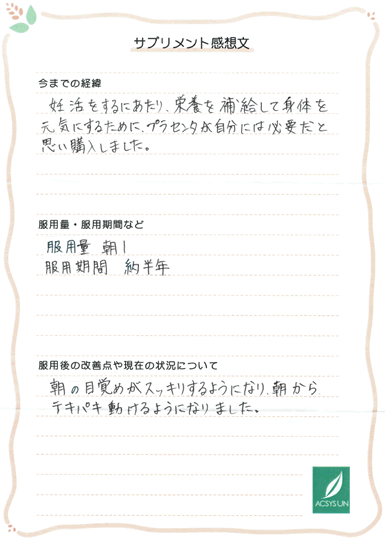 サプリメント感想文
今までの経緯
妊活をするにあたり、栄養を補給して身体を
元気にするために、プラセンタが自分には必要だと
思い購入しました。
服用量・服用期間など
服用量 朝1
服用期間 約半年
服用後の改善点や現在の状況について
朝の目覚めがスッキリするようになり、朝から
テキパキ動けるようになりました。
ACSYSUN